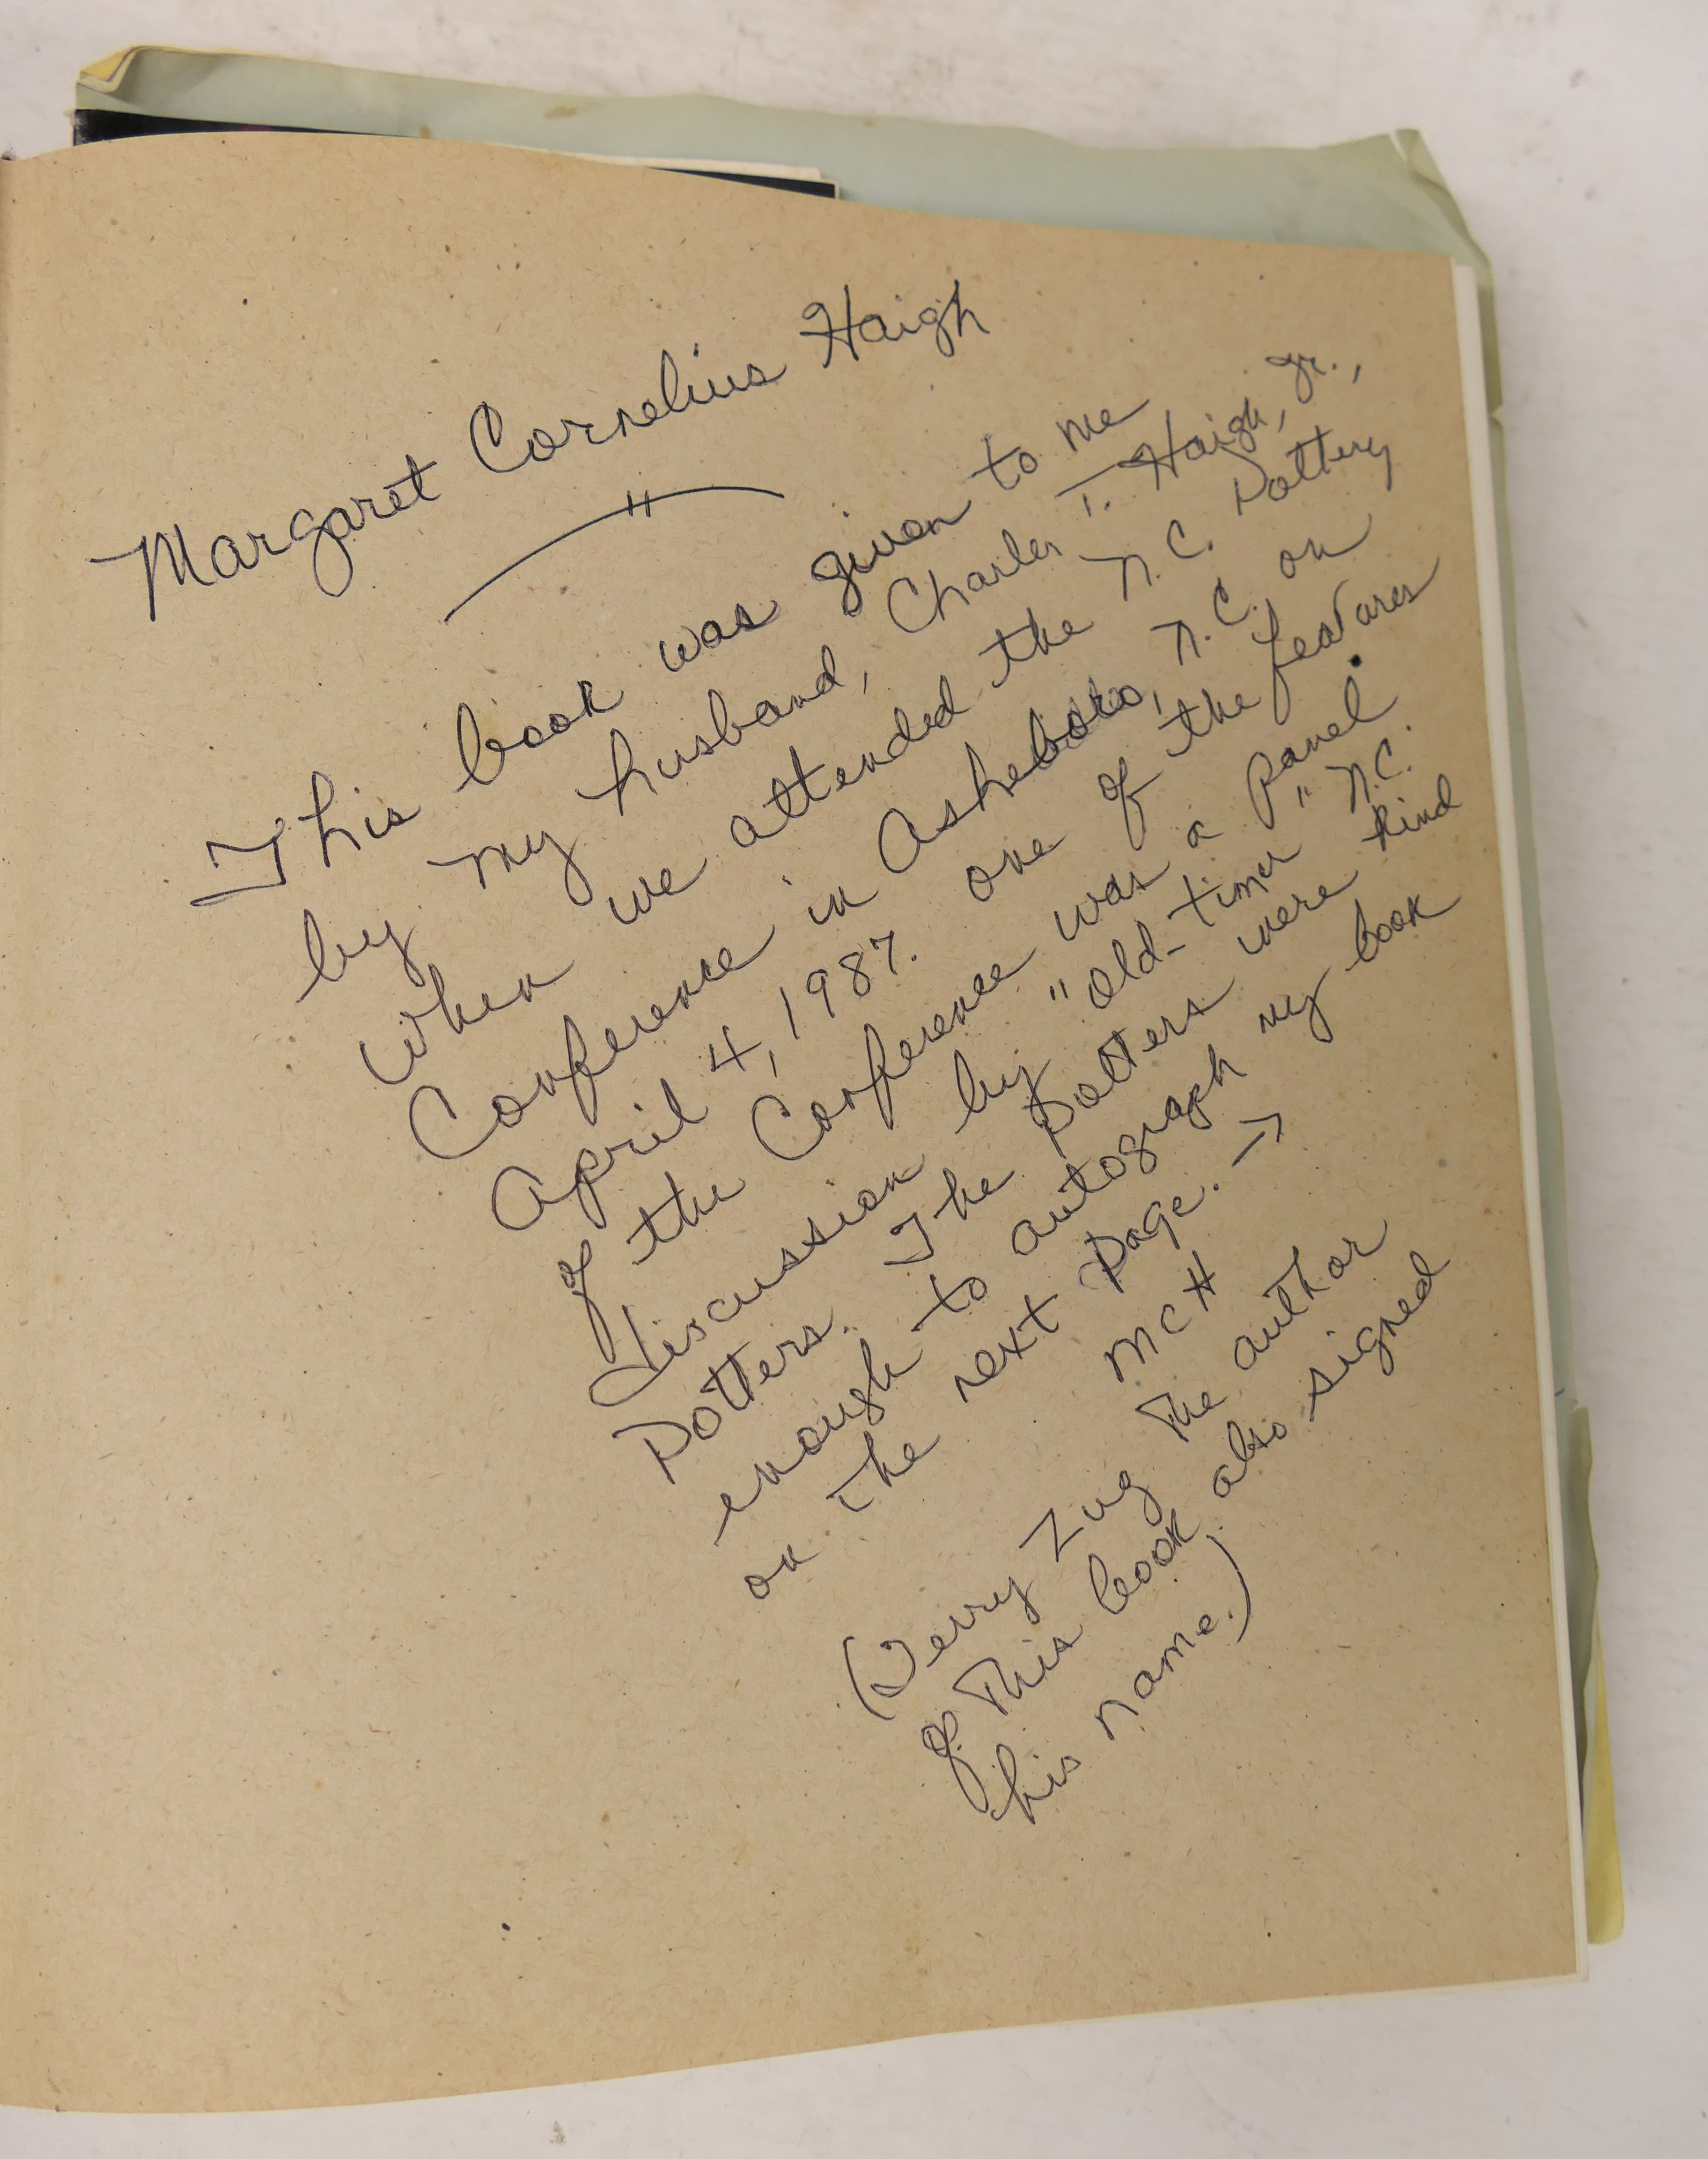 Margaret Cornelius Haigh
"
This book was given to me
by my husband, Charles T. Haigh, Jr.,
when we attended the N.C. Pottery
Conference in Asheboro, N.C. on
April 4, 1987. One of the features
of the Conference was a panel
discussion by "old-timer" N.C.
Potters. The Potters were kind
enough to autograph my book
on the next page. →
MCH
(Terry Zug the author
of this book also signed
his name.)